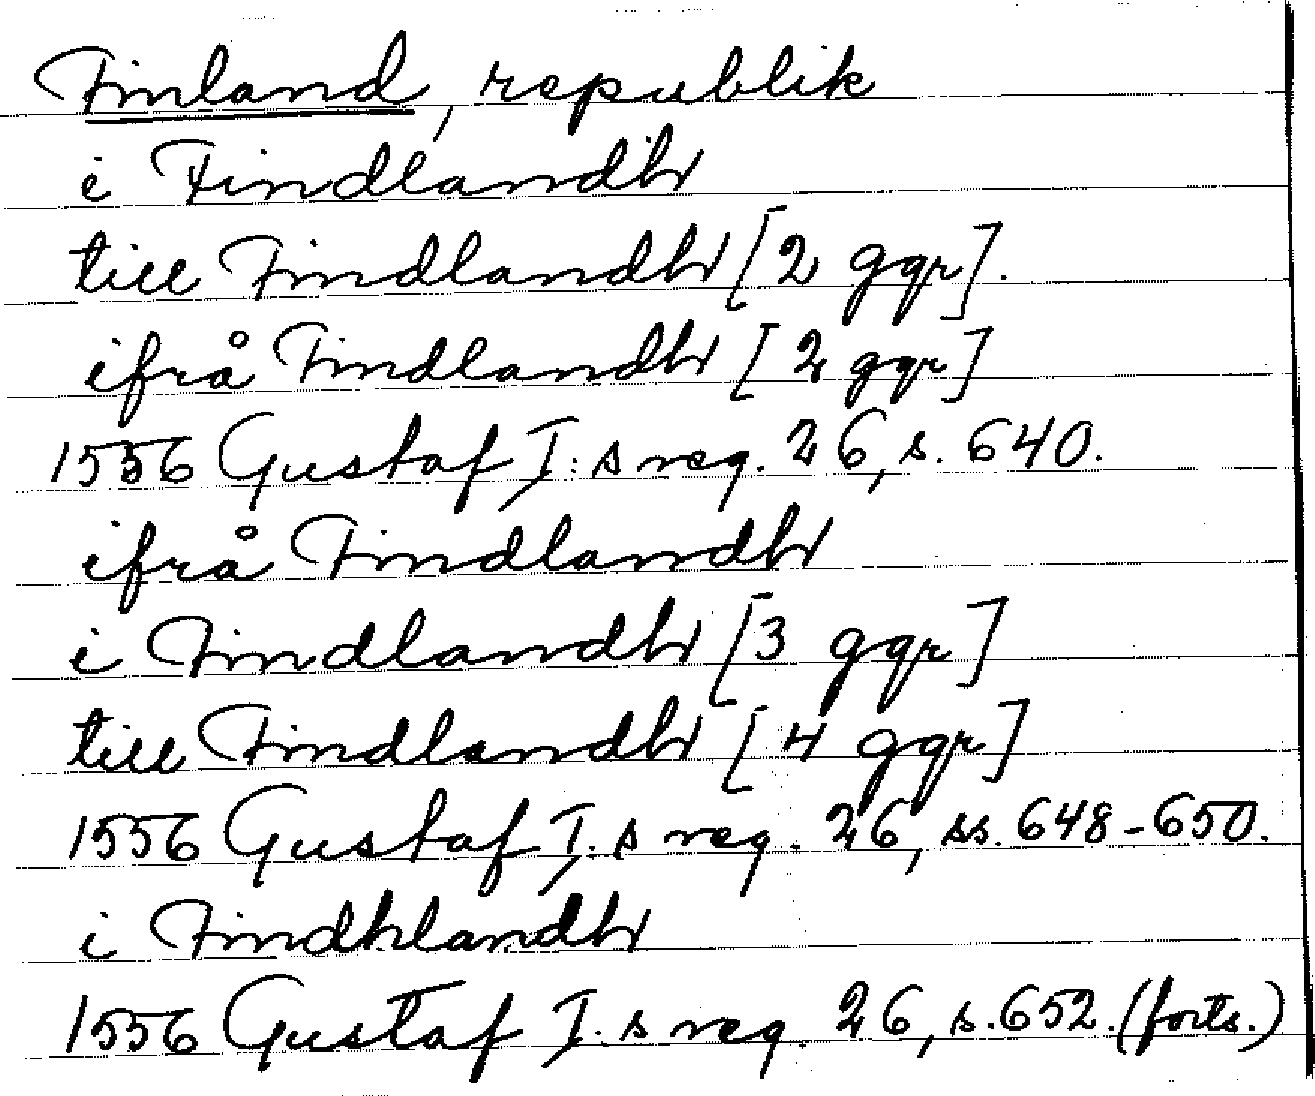 Finland, republik
i Findlandh
till Findlandh [2 ggr].
ifrå Findlandh [2 ggr]
1556 Gustaf I:s reg. 26, s. 640.
ifrå Findlandh
i Findlandh [3 ggr]
till Findlandh [4 ggr]
1556 Gustaf I:s reg. 26, ss. 648-650.
i Findhlandh
1556 Gustaf I:s reg. 26, s. 652. (forts.)